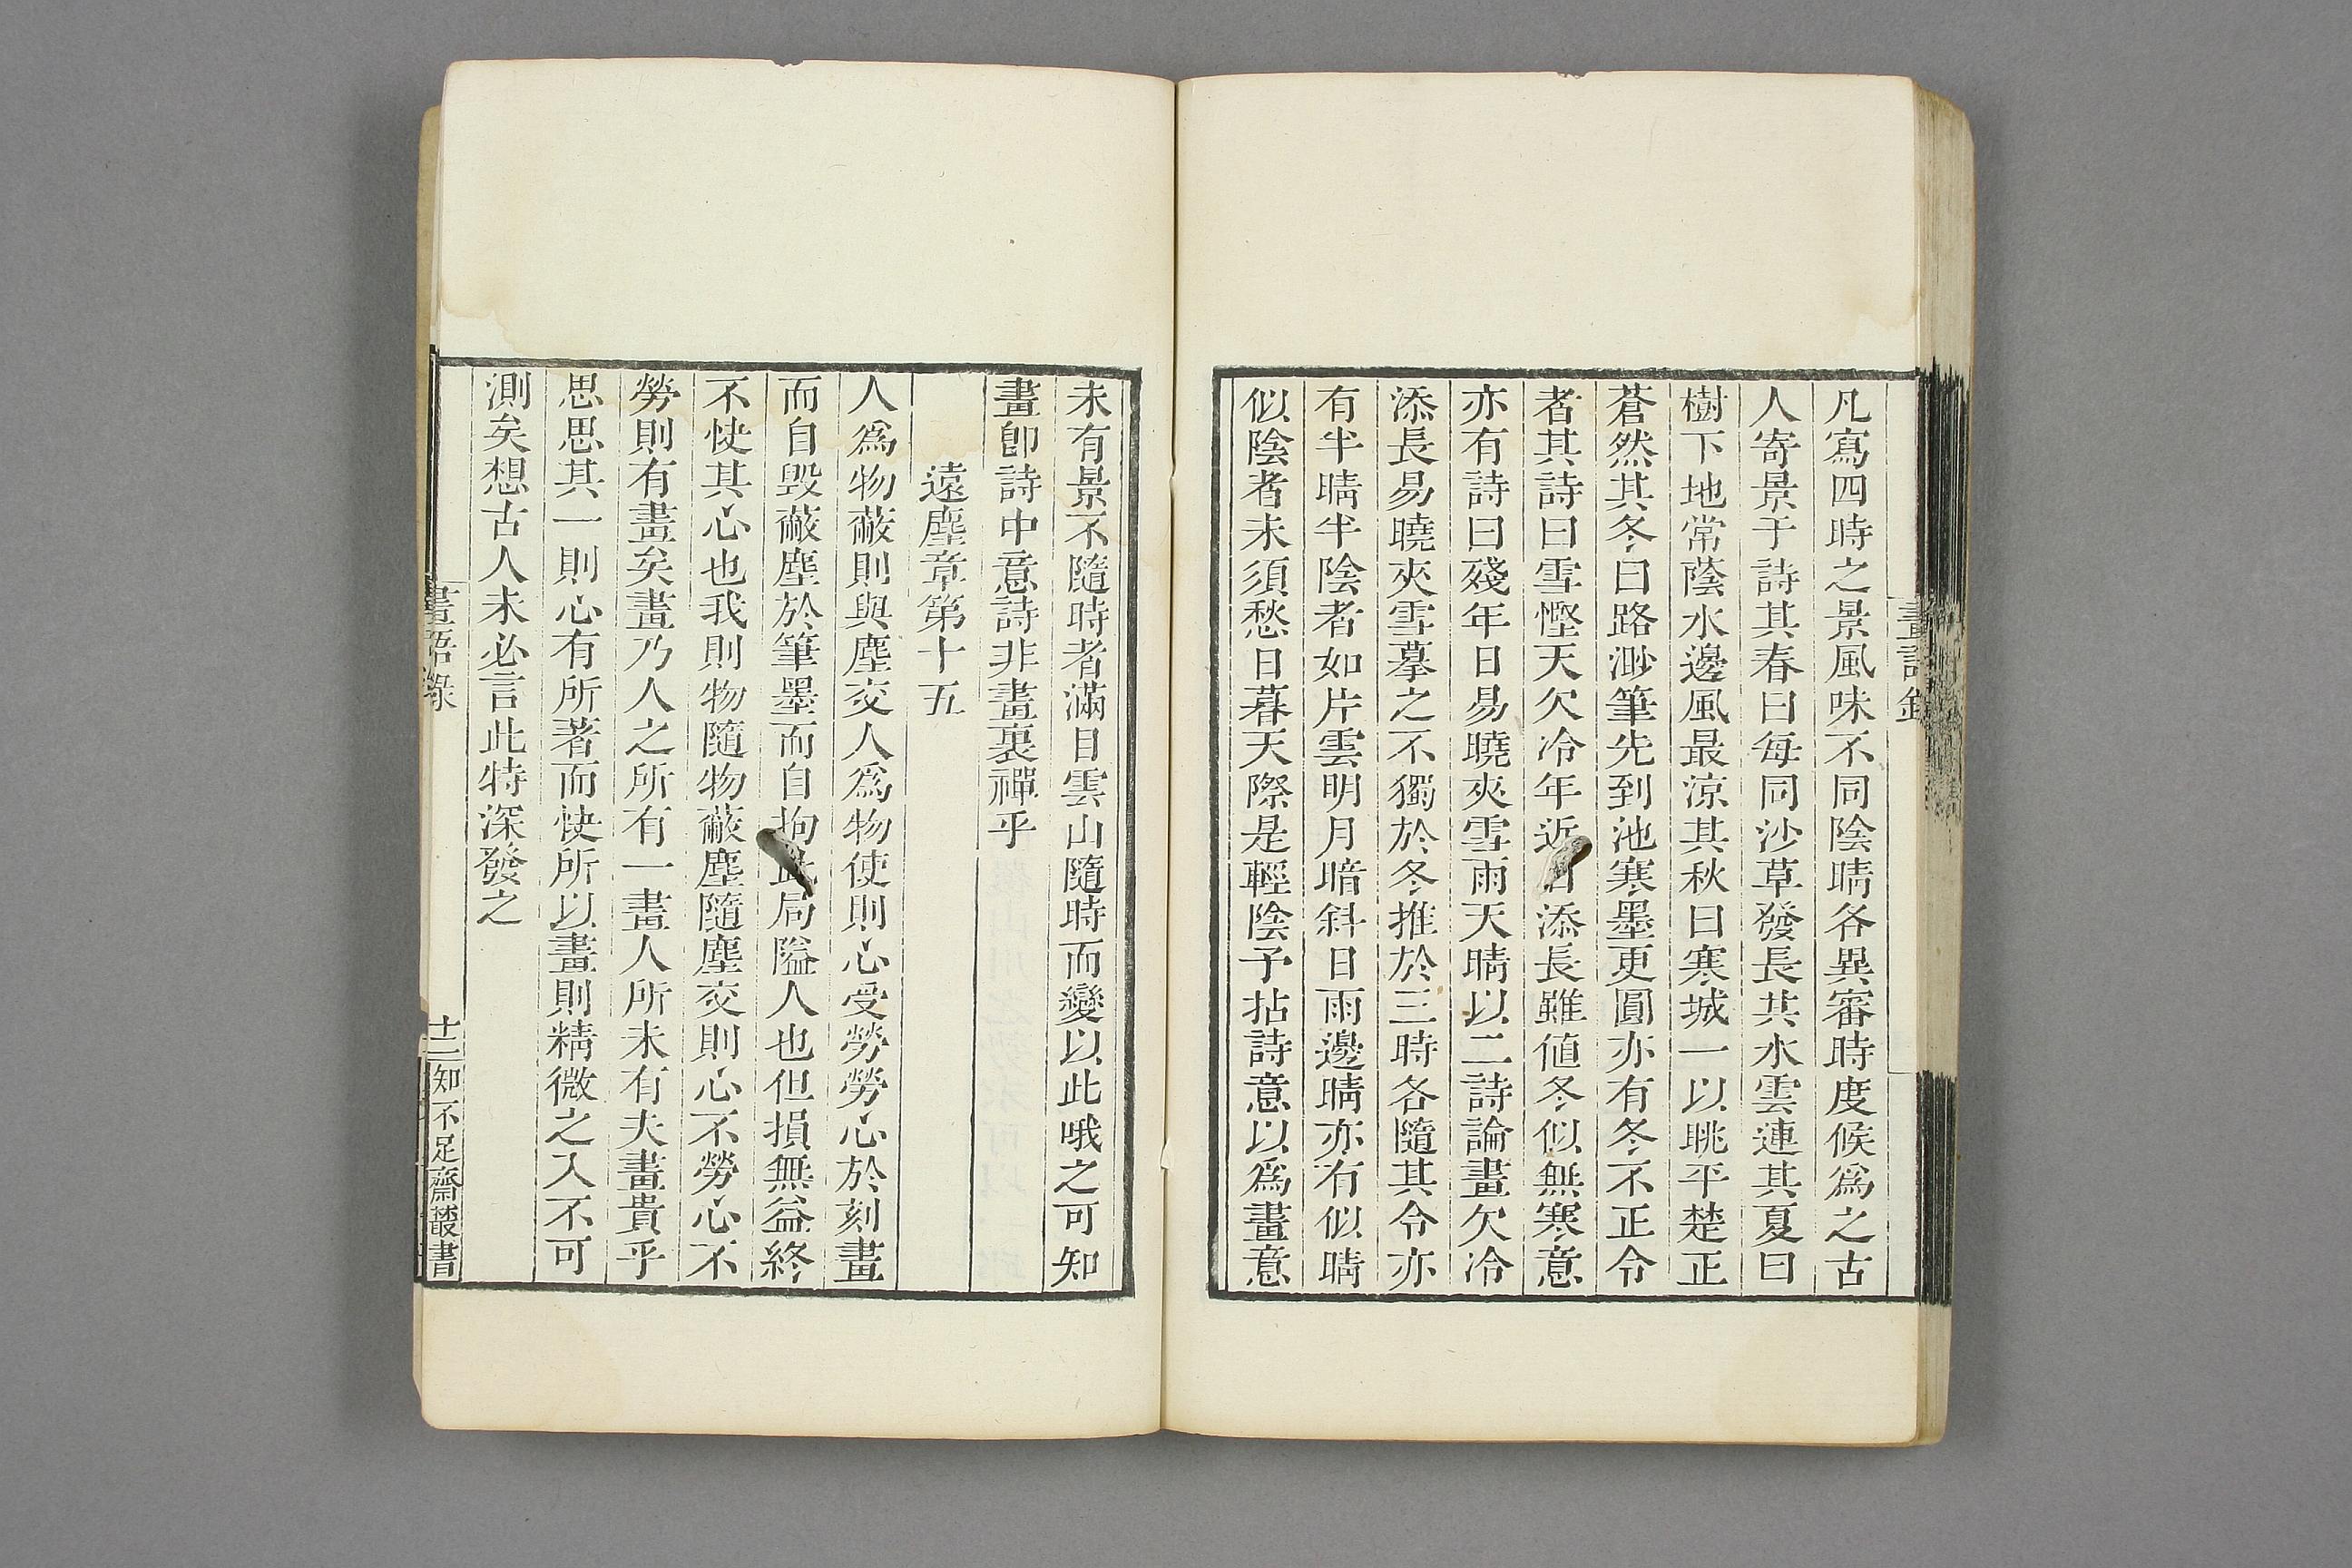 畫語錄
凡寫四時之景風味不同陰晴各異審時度候爲之古
人寄景于詩其春曰每同沙草發長共水雲連其夏曰
樹下地常蔭水邊風最涼其秋曰寒城一以眺平楚正
蒼然其冬曰路渺筆先到池寒墨更圓亦有冬不正令
者其詩曰雪慳天欠冷年近日添長雖値冬似無寒意
亦有詩曰殘年日易曉夾雪雨天晴以二詩論畫欠冷
添長易曉夾雪摹之不獨於冬推於三時各隨其令亦
有半晴半陰者如片雲明月暗斜日雨邊晴亦有似晴
似陰者未須愁日暮天際是輕陰予拈詩意以爲畫意
未有景不隨時者滿目雲山隨時而變以此哦之可知
畫卽詩中意詩非畫裏禪乎
遠塵章第十五
人爲物蔽則與塵交人爲物使則心受勞勞心於刻畫
而自毀蔽塵於筆墨而自拘此局隘人也但損無益終
不快其心也我則物隨物蔽塵隨塵交則心不勞心不
勞則有畫矣畫乃人之所有一畫人所未有夫畫貴乎
思思其一則心有所著而快所以畫則精微之入不可
測矣想古人未必言此特深發之
畫語錄
十二
知不足齋叢書